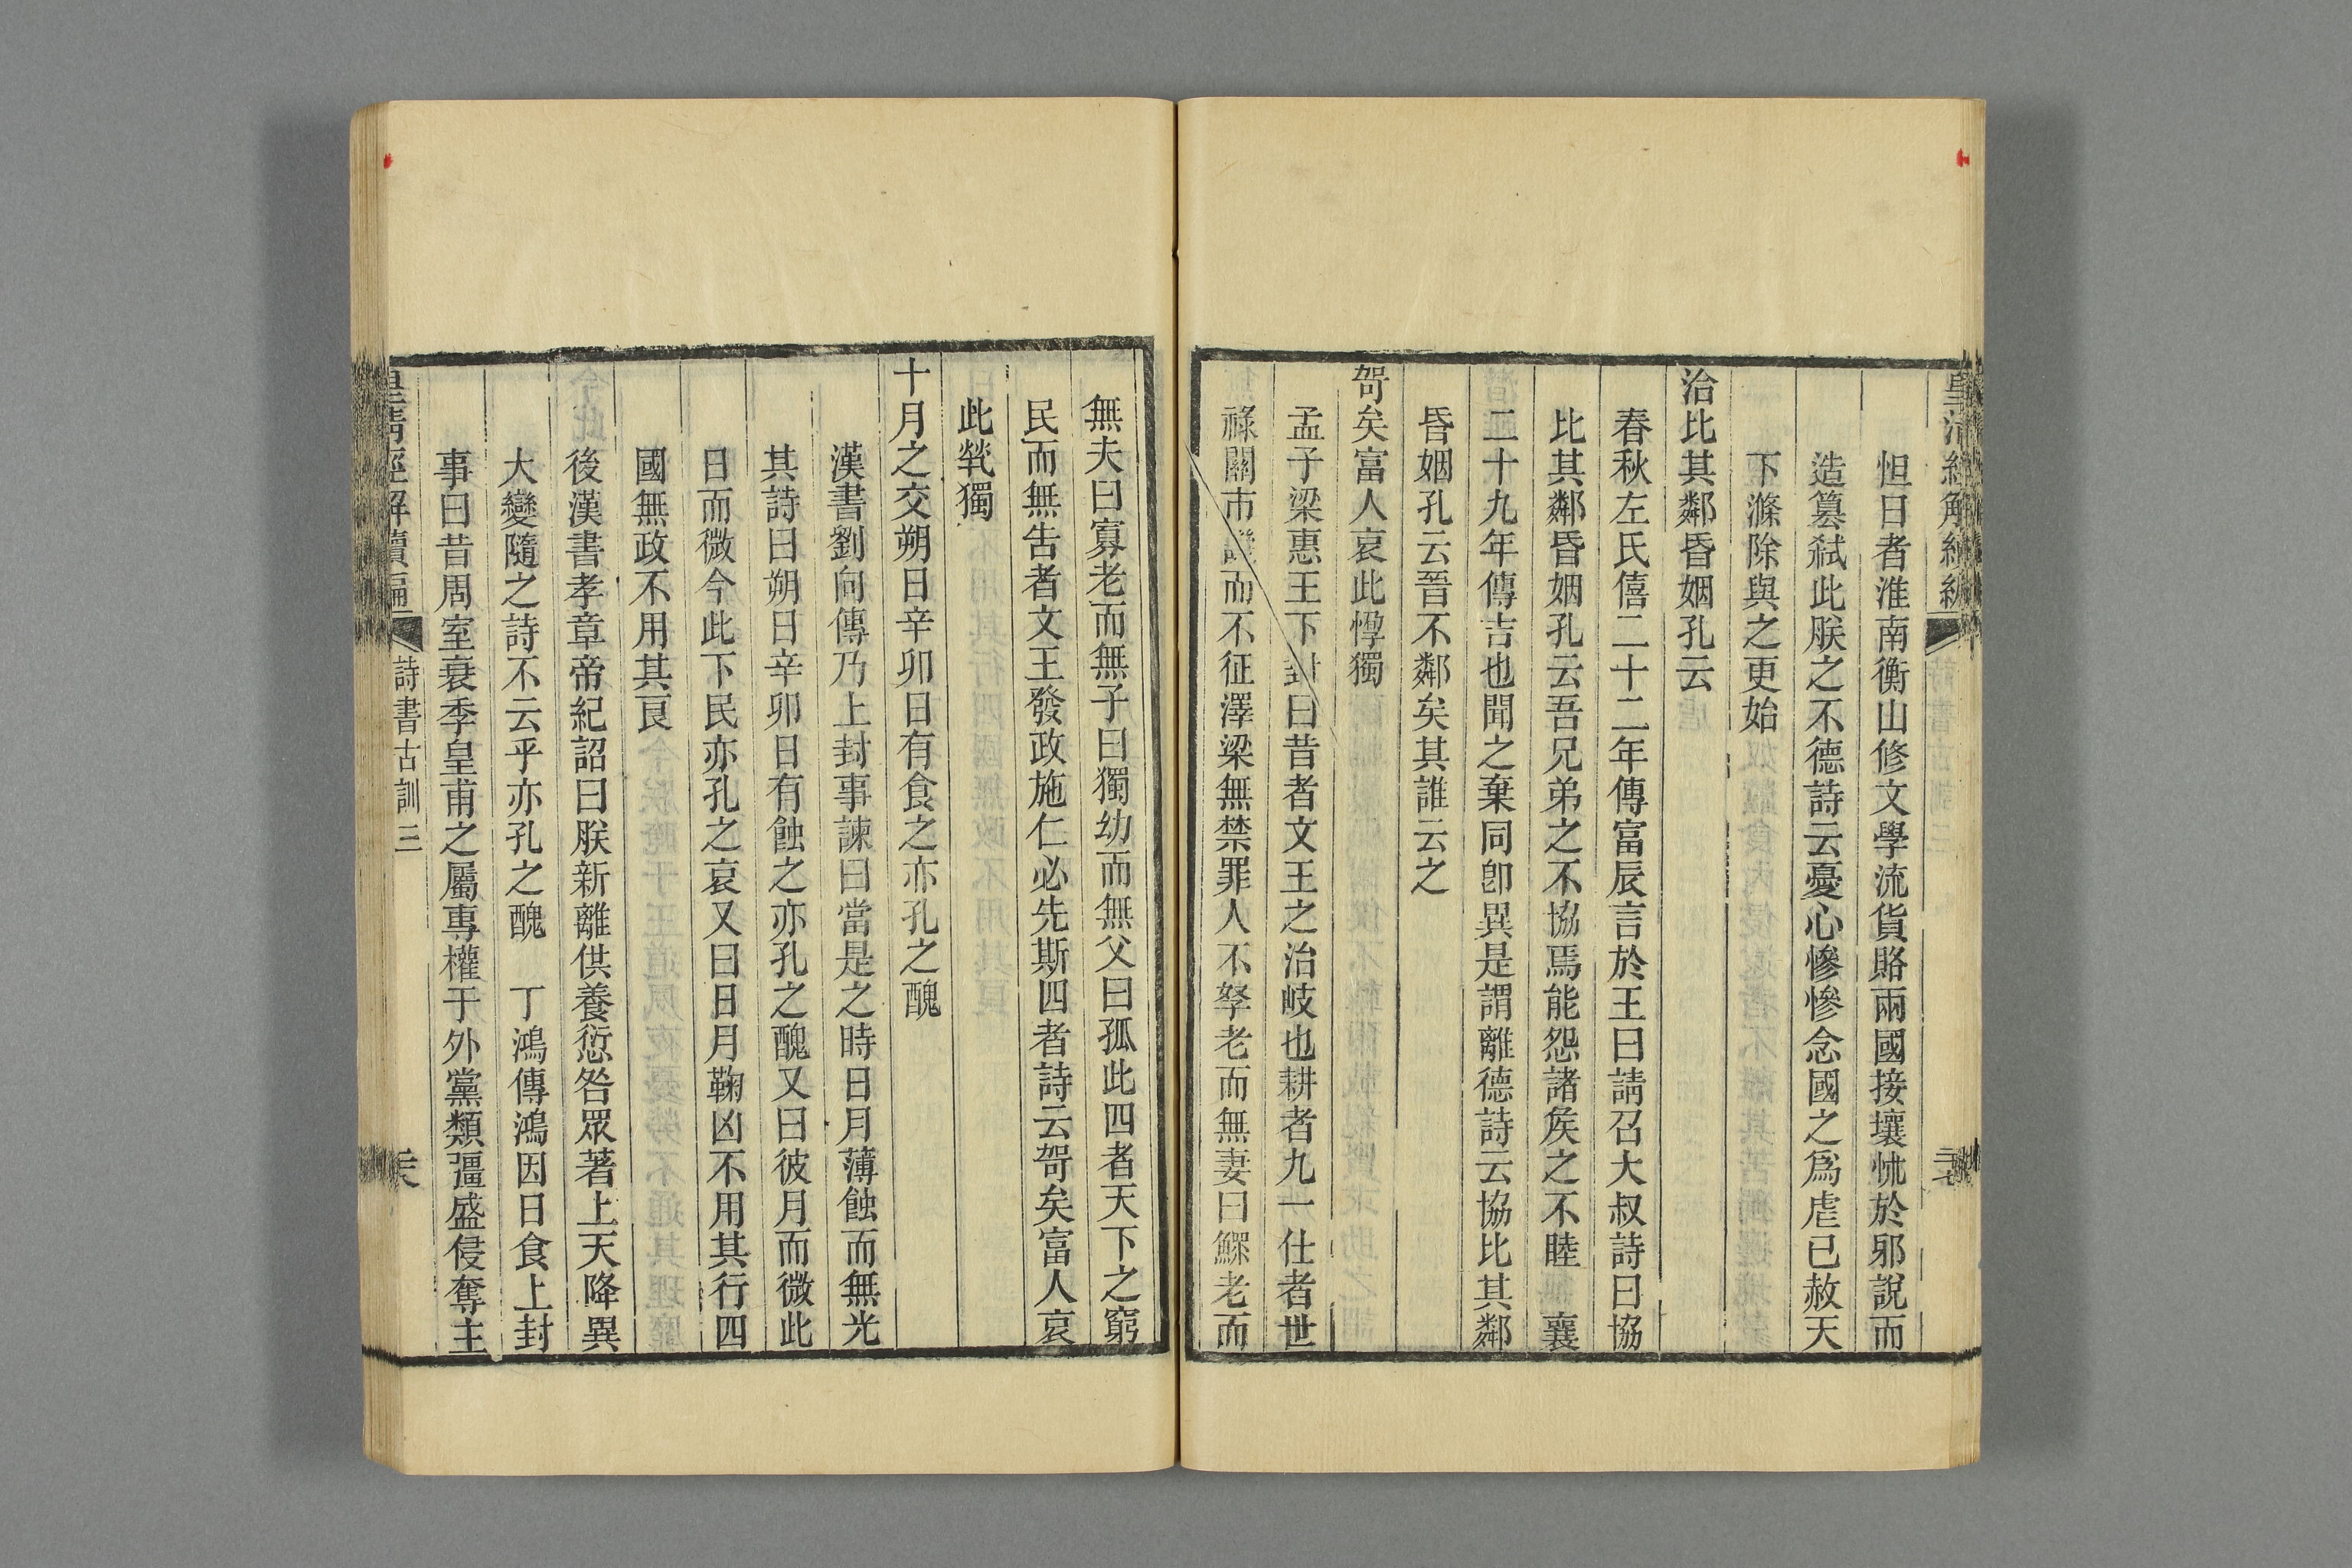 怛日者淮南衡山修文學流貨賂兩國接壤怵於邪說而
造篡弒此朕之不德詩云憂心慘慘念國之爲虐已赦天
下滌除與之更始
洽比其鄰昏姻孔云
春秋左氏僖二十二年傳富辰言於王曰請召大叔詩曰協
比其鄰昏姻孔云吾兄弟之不協焉能怨諸矦之不睦 襄
二十九年傳吉也聞之棄同卽異是謂離德詩云協比其鄰
昏姻孔云晉不鄰矣其誰云之
哿矣富人哀此惸獨
孟子梁惠王下對曰昔者文王之治岐也耕者九一仕者世
祿關市譏而不征澤梁無禁罪人不孥老而無妻曰鰥老而
無夫曰寡老而無子曰獨幼而無父曰孤此四者天下之窮
民而無告者文王發政施仁必先斯四者詩云哿矣富人哀
此煢獨
十月之交朔日辛卯日有食之亦孔之醜
漢書劉向傳乃上封事諫曰當是之時日月薄蝕而無光
其詩曰朔日辛卯日有蝕之亦孔之醜又曰彼月而微此
日而微今此下民亦孔之哀又曰日月鞠凶不用其行四
國無政不用其良
後漢書孝章帝紀詔曰朕新離供養愆咎眾著上天降異
大變隨之詩不云乎亦孔之醜 丁鴻傳鴻因日食上封
事曰昔周室衰季皇甫之屬專權于外黨類彊盛侵奪主
皇清經解續編
詩書古訓三